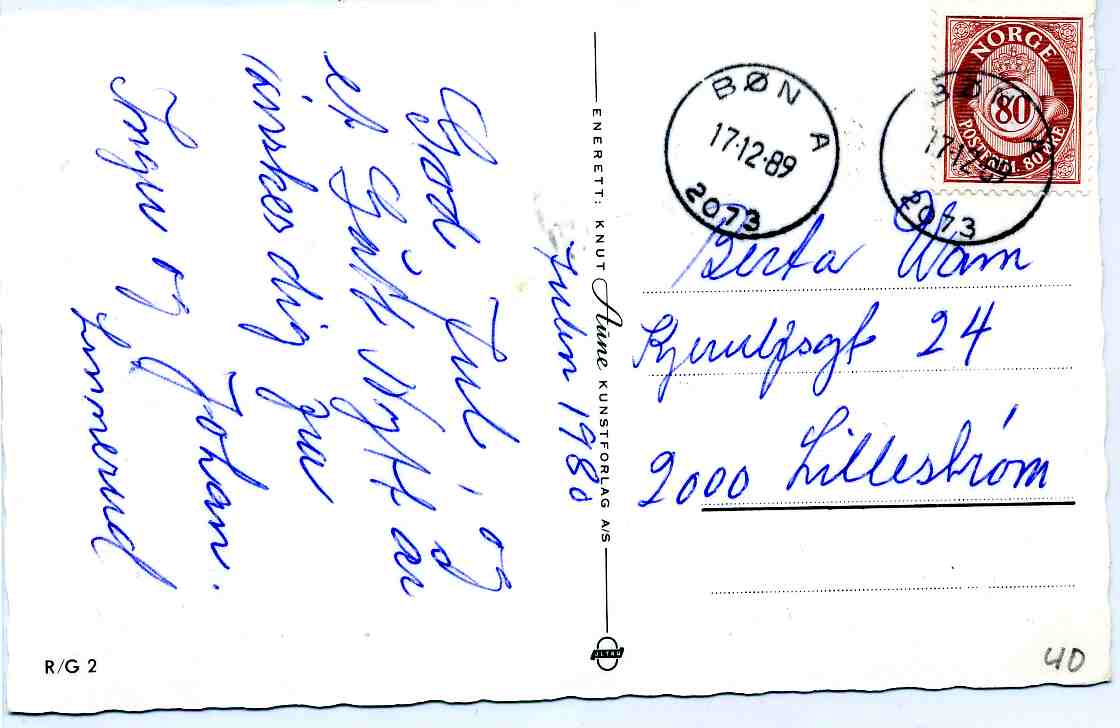 Julen 1980
God Jul, og
et Godt Nytt år
ønskes dig fra
Inga og Johan.
Finnerud
ENERETT: KNUT Aune KUNSTFORLAG A/S
R/G 2
BØN A
17·12·89
2073
BØN A
17·12·89
2073
NORGE
80
POST
80 ØRE
Berta Wam
Kjerulfsgt 24
2000 Lillestrøm
40